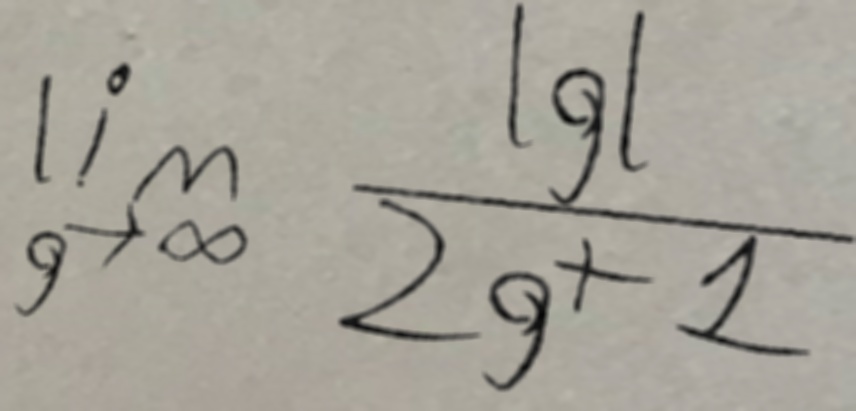 lim |g|
g→∞ 2g+1